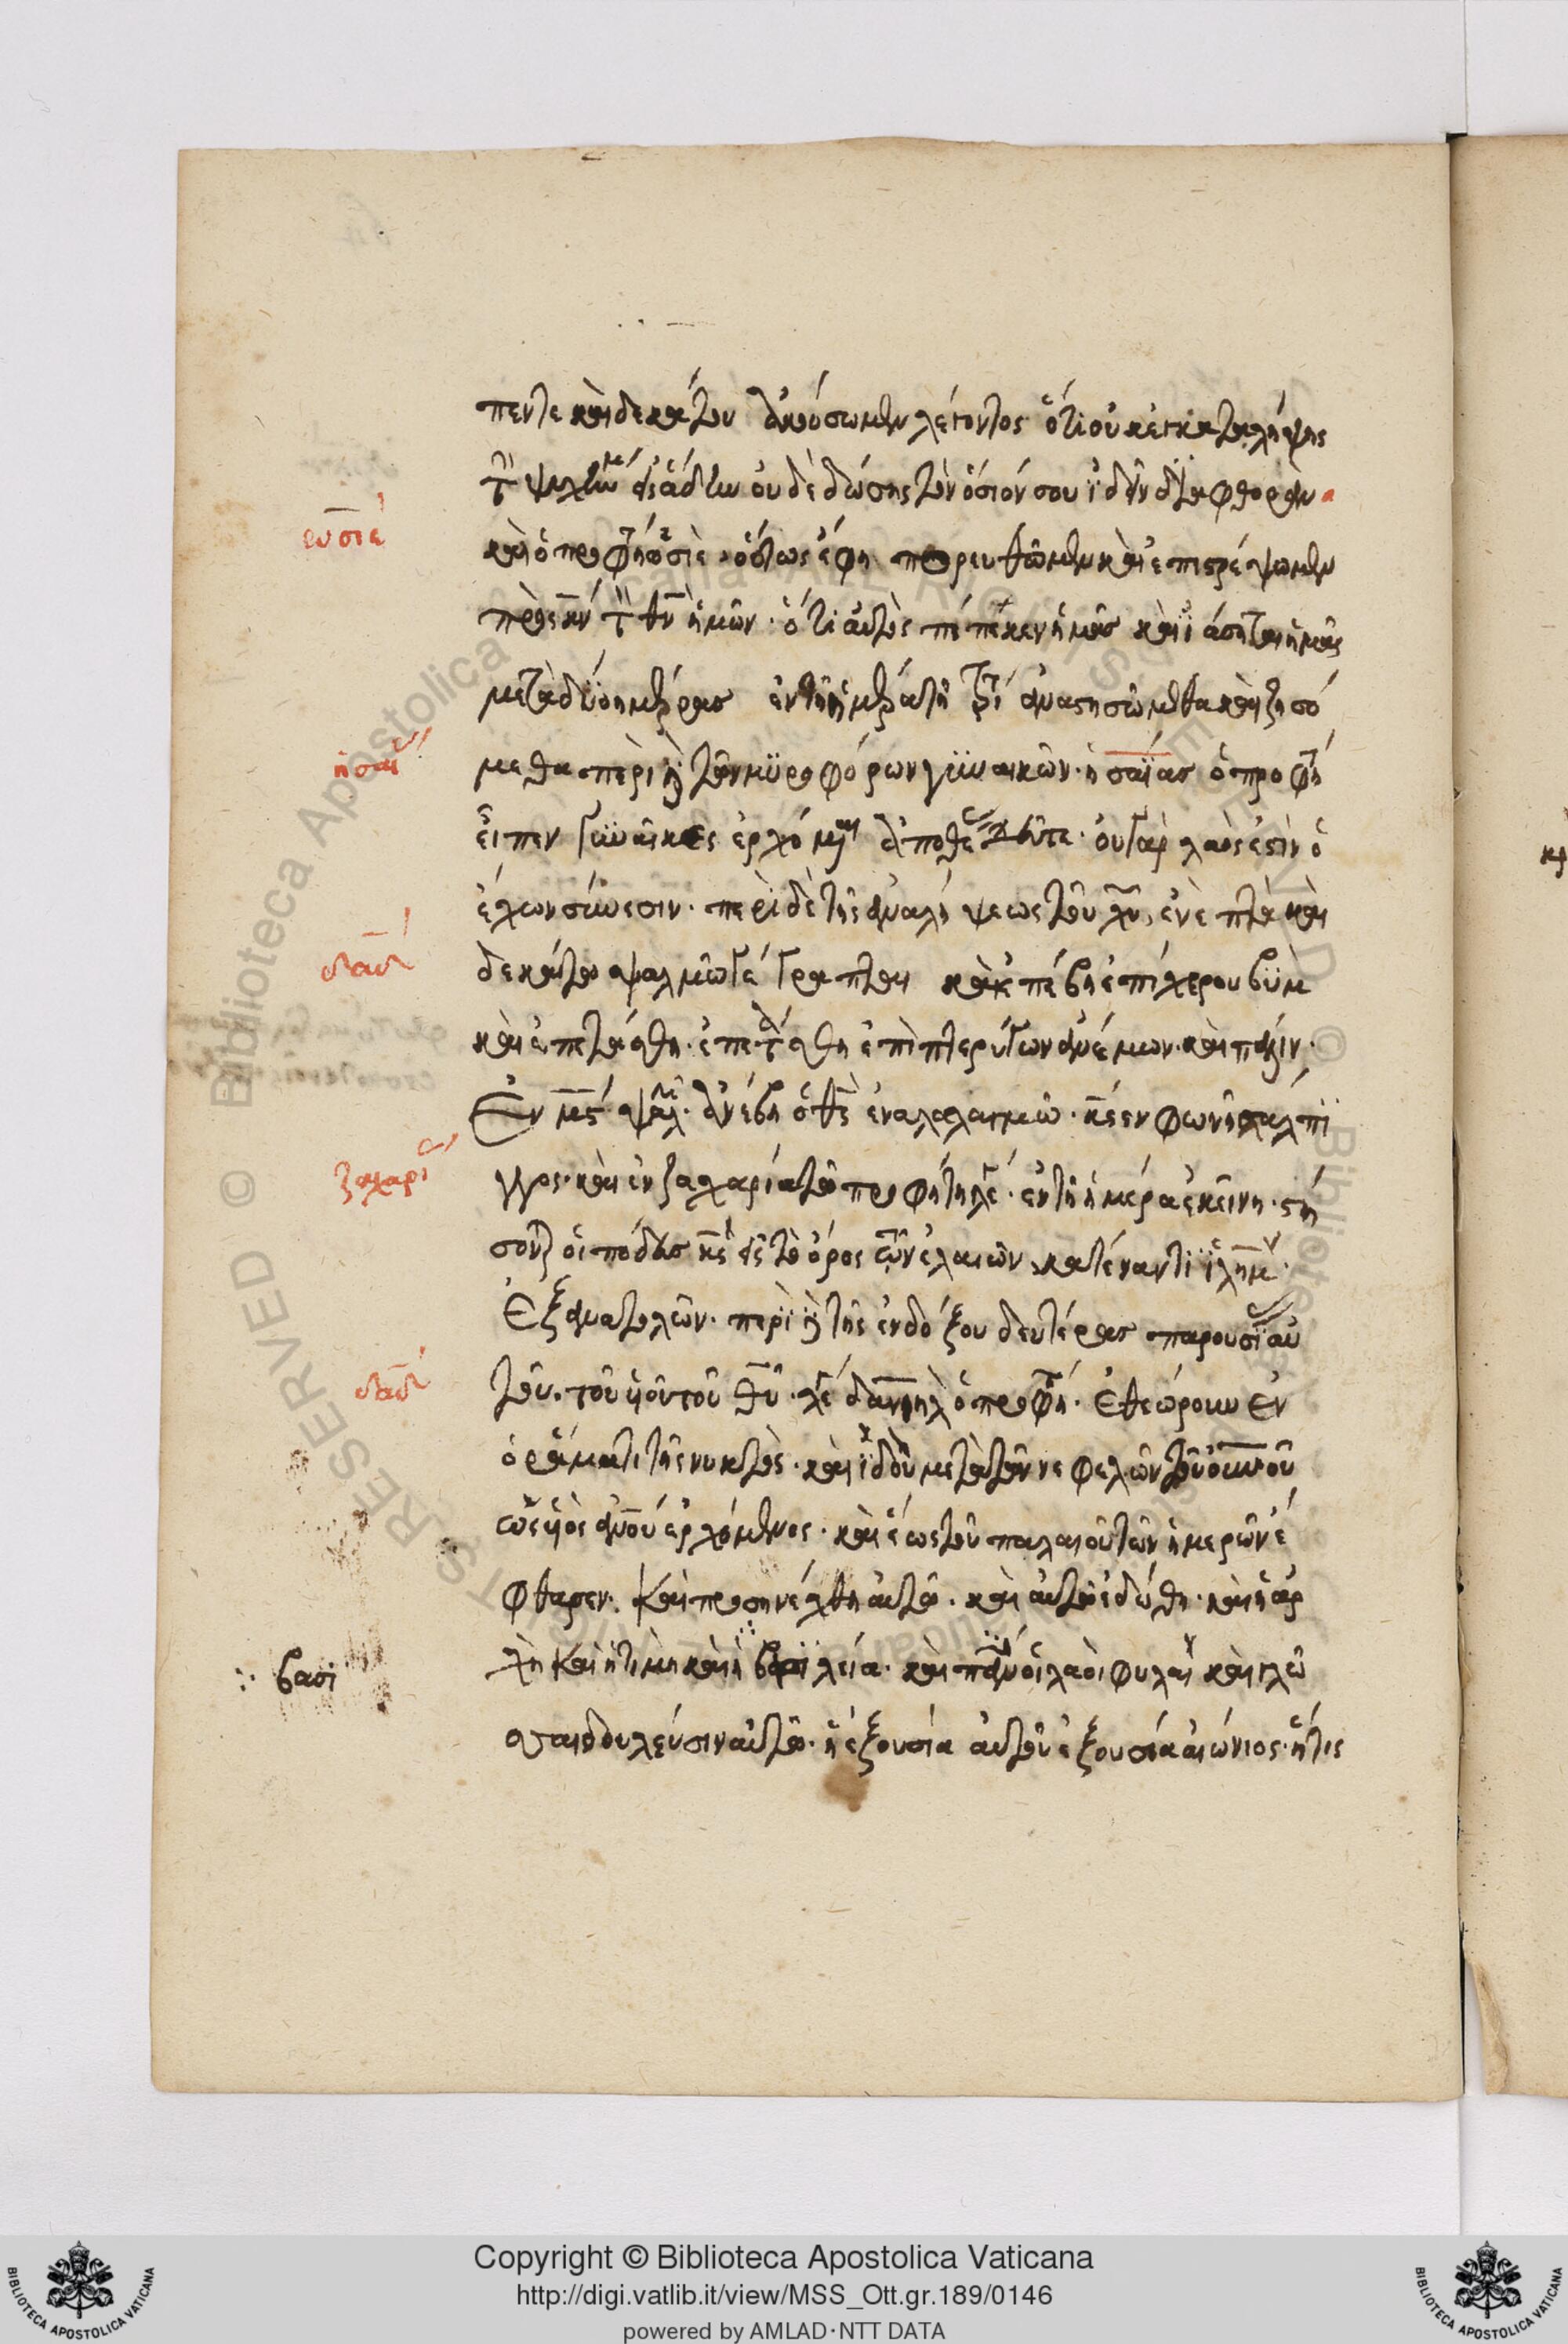 πεντε καὶ δεκάτου ἀκούσωμεν λέγοντος ὅτι οὐκ ἐγκαταλήψης
τ ψυχήν μου εἰς ἅδην οὐ δὲ δώσης τὸν ὅσιόν σου ἰδεῖν διαφθοράν
καὶ ὁ προφή ὡσιὲ οὕτως ἔφη πορευθῶμεν καὶ ἐπιστρέψωμεν
πρὸς κν τ θν ἡμῶν · ὅτι αὐτὸς πέπεκεν ἡμᾶς καὶ ϊάσηται ἡμᾶς
μετὰ δύο ημέρας ἐν τῆ ἡμέρα τῆ τρί ἀναστησώμεθα καὶ ζησό
μεθα περὶ δὲ τῶν μϋροφόρων γϋναικῶν · ησαΐας ὁ προφή
εἶπεν γϋναῖκες ἐρχόμεναι ἀπο θέας δεῦτε · οὐ γὰρ λαός ἐστὶν ὁ
ἔχων σύνεσιν · περὶ δὲ τῆς ἀναλήψεως τοῦ χυ, ἐν ἑπτα και
δεκάτω ψαλμῶ γέγραπται καὶ ἐπέβη ἐπὶ χερουβϋμ
καὶ ἐπετάσθη · ἐπετάσθη ἐπὶ πτερύγων ἀνέμων · καὶ πάλιν ·
Ἐν μς ψαλ · ἀνέβη ὁ θς ἐν αλαλαγμῶ · κς εν φωνῆ σαλπϊ
γγος · καὶ ἐν ζαχαρία τῶ προφήτη λέ · ἐν τῆ ἡμέρα ἐκείνη · στή
σονται οἱ πόδας κυ εἰς τὸ ὄρος τῶν ἐλαιῶν κατέναντι ϊλημ
Ἐξ ἀνατολῶν · περὶ δὲ τῆς ἐνδόξου δευτέρας παρουσίας αὐ
τοῦ · τοῦ υἱοῦ τοῦ θυ · λέ δανιηλ ὁ προφή · Ἐθεώρουν Ἐν
ὁράματι τῆς νυκτὸς · καὶ ϊδοὺ μετὰ τῶν νεφελῶν τοῦ ουνου
ὡς υἱὸς ἀνου ἐρχόμενος · καὶ ἕως τοῦ παλαιοῦ τῶν ἡμερῶν ἔ
φθασεν · καὶ προσηνέχθη αὐτῶ · καὶ αὐτῶ ἐδώθη · καὶ ἡ ἀρ
χὴ καὶ ἡ τιμὴ καὶ ἡ βασϊλεία · καὶ πάντες οἱ λαοὶ φυλαὶ καὶ γλῶ
σσαι δουλεύσιν αὐτῶ · ἡ ἐξουσία αὐτοῦ ἐξουσία αἰώνιος · ἥτις
ωσιέ
ησαΐ
δαδ
ζαχαρί
δαδ
βασι
Copyright © Biblioteca Apostolica Vaticana
http://digi.vatlib.it/view/MSS_Ott.gr.189/0146
powered by AMLAD·NTT DATA
BIBLIOTECA APOSTOLICA VATICANA
BIBLIOTECA APOSTOLICA VATICANA